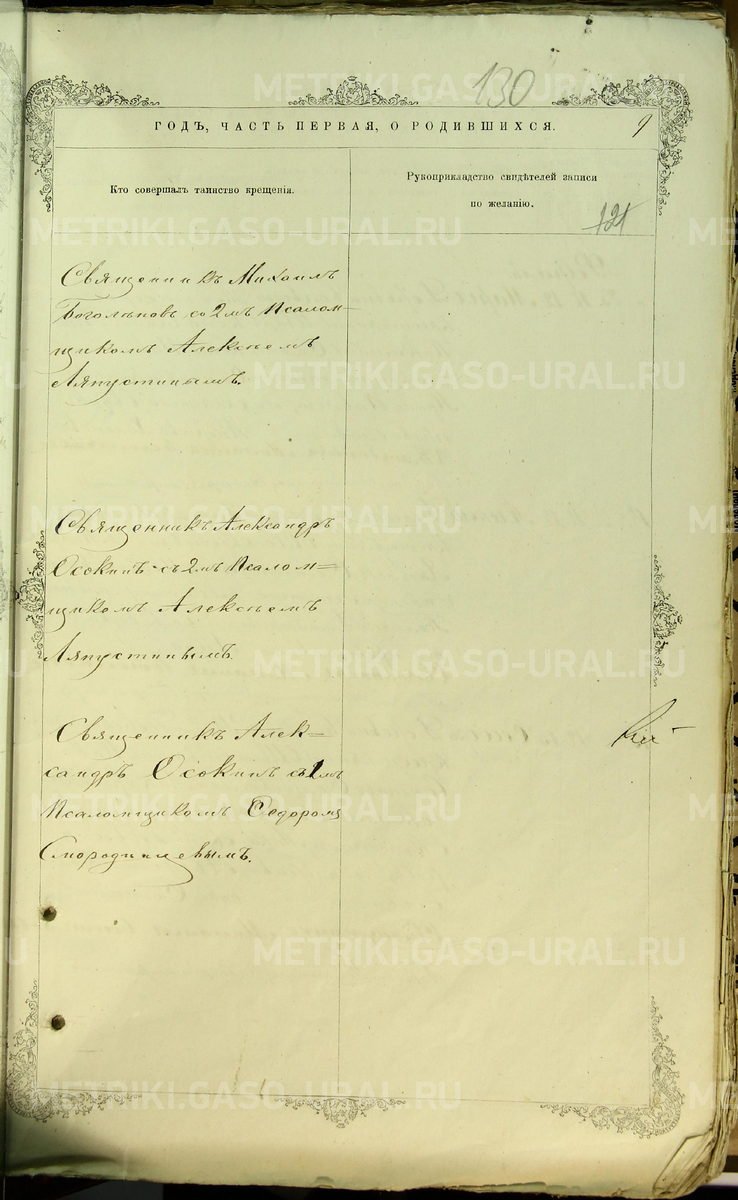 130
ГОДЪ, ЧАСТЬ ПЕРВАЯ, О РОДИВШИХСЯ.
9
Кто совершалъ таинство крещенія.
Рукоприкладство свидѣтелей записи
по желанію.
121
Священникъ Михаилъ
Боголѣповъ со 2мъ Псалом-
щикомъ Алексѣемъ
Ляпустинымъ.
Священникъ Александръ
Осокинъ съ 2мъ Псалом=
щикомъ Алексѣемъ
Ляпустинымъ.
Священникъ Алек=
сандръ Осокинъ съ 1мъ
Псаломщикомъ Ѳедоромъ
Смородинцевымъ.
METRIKI.GASO-URAL.RU